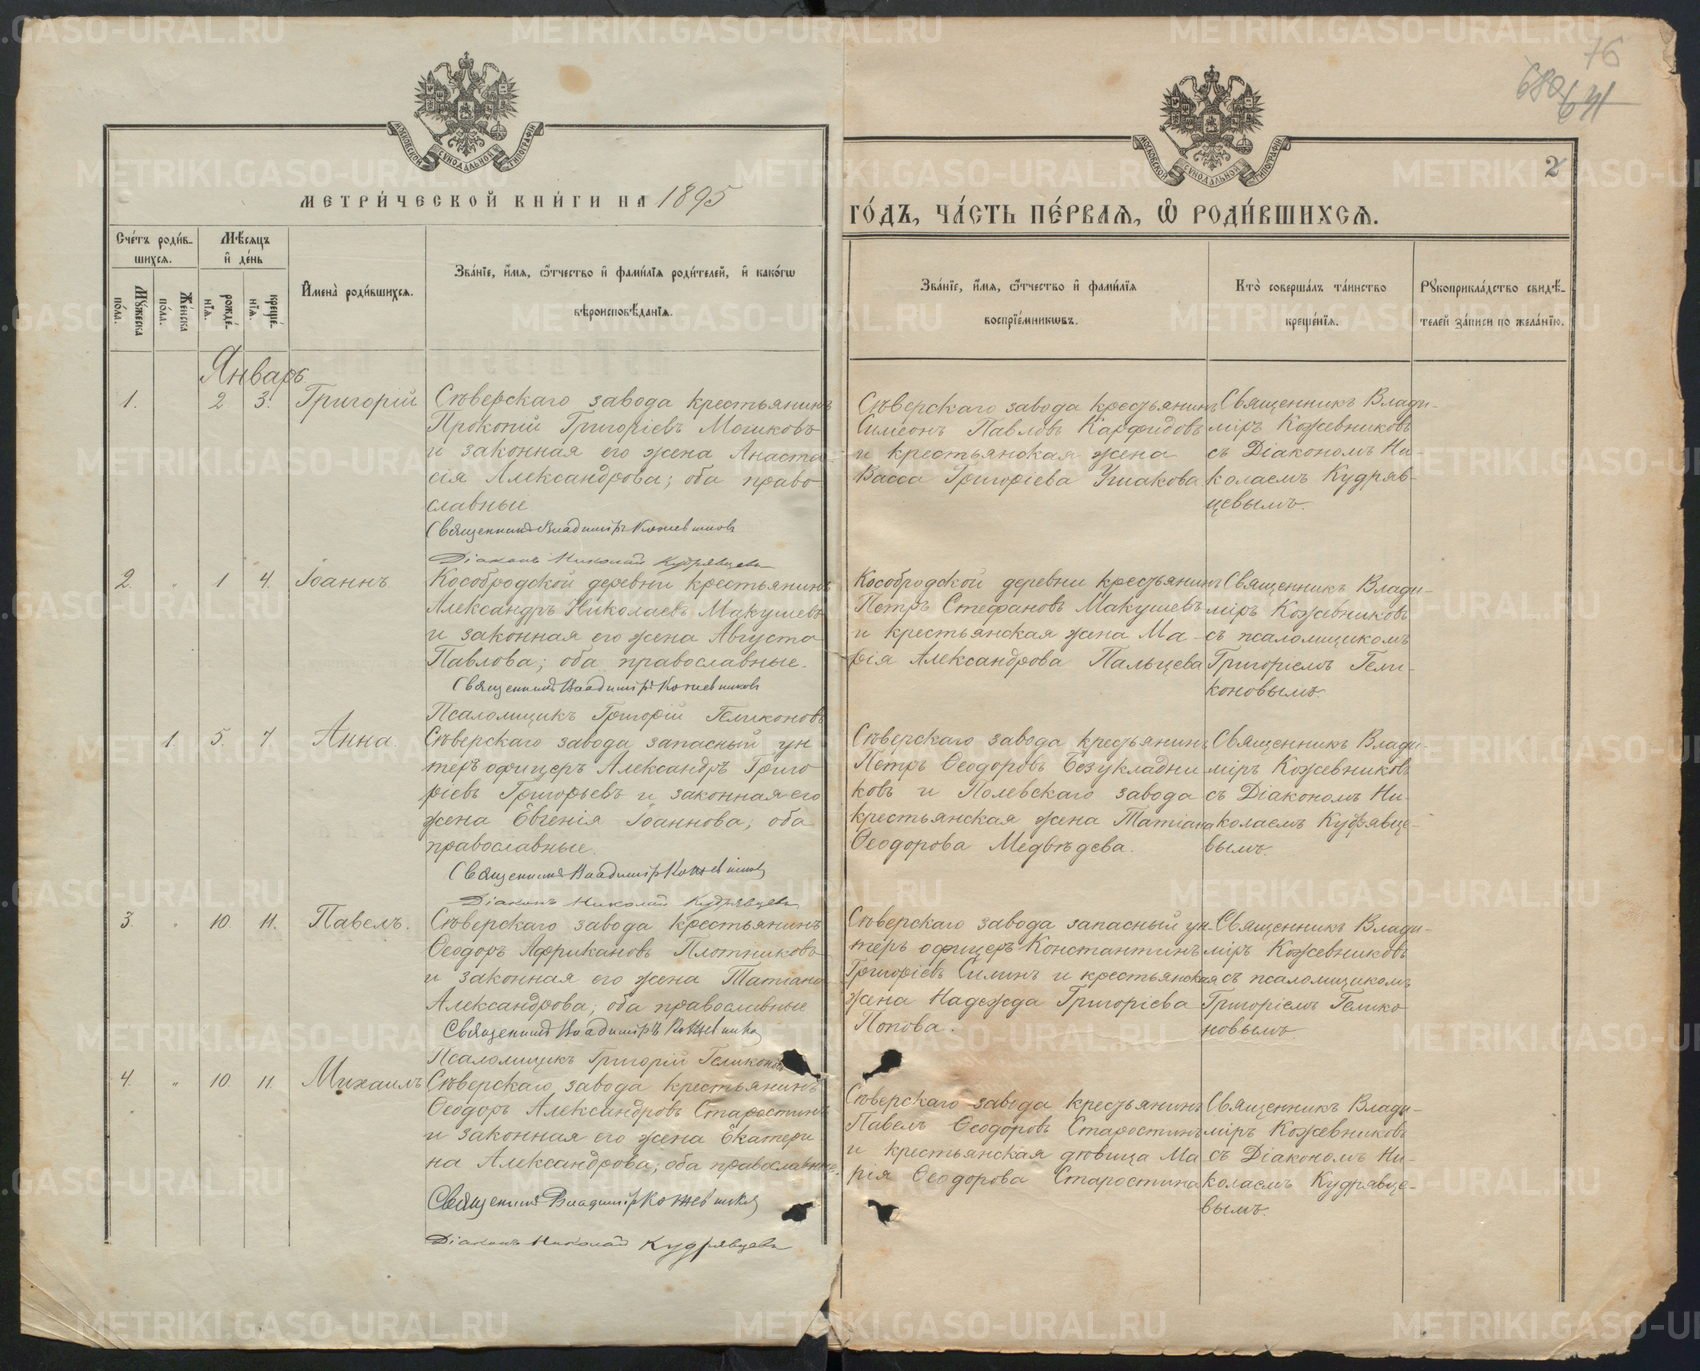 76
680
641
МОСКОВСКОЙ СѴНОДАЛЬНОЙ ТИПОГРАФІИ
МОСКОВСКОЙ СѴНОДАЛЬНОЙ ТИПОГРАФІИ
2
МЕТРИ́ЧЕСКОЙ КНИ́ГИ НА 1895
ГО́ДЪ, ЧА́СТЬ ПЕ́РВАѦ, Ѡ҆ РОДИ́ВШИХСѦ.
Сче́тъ роди́в-
шихсѧ.
Мѣ́сѧцъ
и҆ де́нь
Мꙋ́жеска
по́ла.
Же́нска
по́ла.
рожде́-
нїѧ.
креще́-
нїѧ.
И҆мена̀ роди́вшихсѧ.
Зва́нїе, и҆́мѧ, ѻ҆́тчество и҆ фами́лїѧ роди́телей, и҆ како́гѡ
вѣроисповѣ́данїѧ.
Зва́нїе, и҆́мѧ, ѻ҆́тчество и҆ фами́лїѧ
воспрїе́мникѡвъ.
Кто̀ соверша́лъ та́инство
креще́нїѧ.
Рꙋкоприкла́дство свидѣ́-
телей за́писи по жела́нїю.
Январь.
1. 2 3. Григорій
Сѣверскаго завода крестьянинъ
Прокопій Григоріевъ Мошковъ
и законная его жена Анаста-
сія Александрова; оба право-
славные
Священникъ Владиміръ Кожевниковъ
Діаконъ Николай Кудрявцевъ
Сѣверскаго завода крестьянинъ
Симеонъ Павловъ Карфидовъ
и крестьянская жена
Васса Григоріева Ушакова
Священникъ Влади-
міръ Кожевниковъ
съ Діакономъ Ни-
колаемъ Кудряв-
цевымъ.
2. " 1 4. Іоаннъ
Кособродской деревни крестьянинъ
Александръ Николаевъ Макушевъ
и законная его жена Августа
Павлова; оба православные.
Священникъ Владиміръ Кожевниковъ
Псаломщикъ Григорій Геликоновъ
Кособродской деревни крестьянинъ
Петръ Стефановъ Макушевъ
и крестьянская жена Ма-
рія Александрова Пальцева
Священникъ Влади-
міръ Кожевниковъ
съ псаломщикомъ
Григоріемъ Гели-
коновымъ.
1. 5. 7 Анна.
Сѣверскаго завода запасный ун
теръ офицеръ Александръ Григо
ріевъ Григорьевъ и законная его
жена Евгенія Іоаннова; оба
православные.
Священникъ Владиміръ Кожевниковъ
Діаконъ Николай Кудрявцевъ
Сѣверскаго завода крестьянинъ
Петръ Ѳеодоровъ Безукладни
ковъ и Полевскаго завода
крестьянская жена Татіана
Ѳеодорова Медвѣдева.
Священникъ Влади-
міръ Кожевниковъ
съ Діакономъ Ни-
колаемъ Кудрявце-
вымъ.
3. " 10 11. Павелъ.
Сѣверскаго завода крестьянинъ
Ѳеодоръ Африкановъ Плотниковъ
и законная его жена Татіана
Александрова; оба православные
Священникъ Владиміръ Кожевниковъ
Псаломщикъ Григорій Геликоновъ
Сѣверскаго завода запасный ун-
теръ офицеръ Константинъ
Григоріевъ Силинъ и крестьянская
жена Надежда Григоріева
Попова.
Священникъ Влади-
міръ Кожевниковъ
съ псаломщикомъ
Григоріемъ Гелико
новымъ.
4. " 10. 11. Михаилъ
Сѣверскаго завода крестьянинъ
Ѳеодоръ Александровъ Старостинъ
и законная его жена Екатери
на Александрова; оба православные.
Священникъ Владиміръ Кожевниковъ
Діаконъ Николай Кудрявцевъ
Сѣверскаго завода крестьянинъ
Павелъ Ѳеодоровъ Старостинъ
и крестьянская дѣвица Ма
рія Ѳеодорова Старостина
Священникъ Влади-
міръ Кожевниковъ
съ Діакономъ Ни-
колаемъ Кудрявце-
вымъ.
METRIKI.GASO-URAL.RU